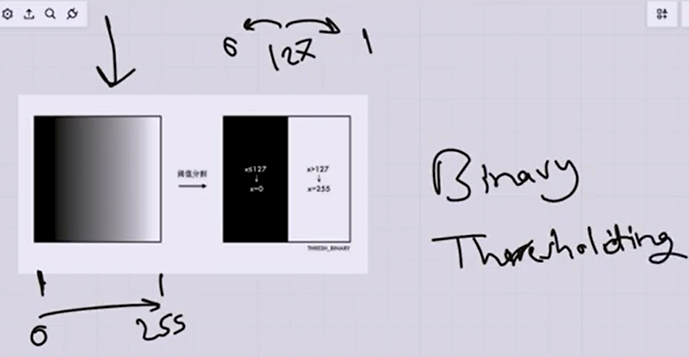 0 127 1
阈值分割
x≤127 x>127
↓ ↓
x=0 x=255
THRESH_BINARY
Binary
Thresholding
0 255